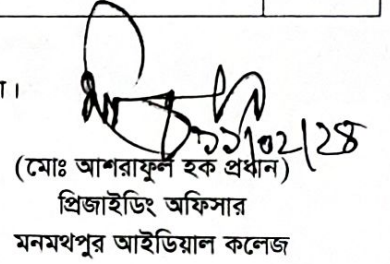 ১১/০২/২৪
(মোঃ আশরাফুল হক প্রধান)
প্রিজাইডিং অফিসার
মনমথপুর আইডিয়াল কলেজ